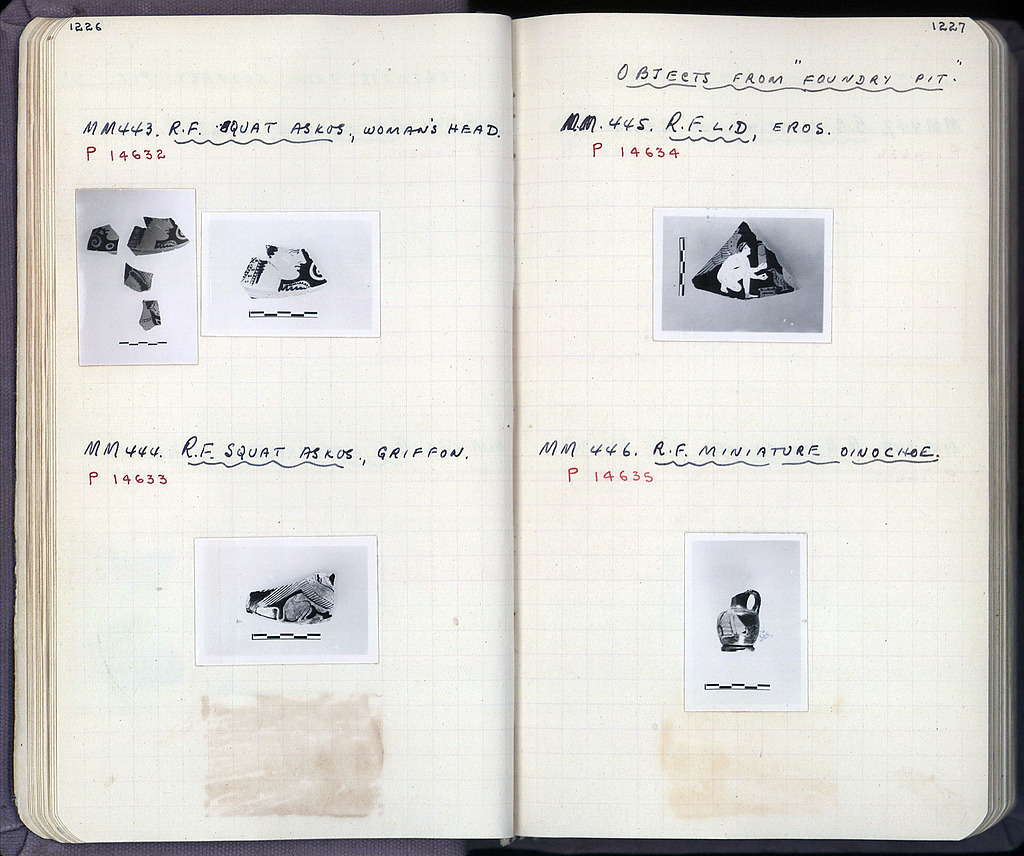 1226
MM443. R.F. SQUAT ASKOS, WOMAN'S HEAD.
P 14632
MM444. R.F. SQUAT ASKOS, GRIFFON.
P 14633
1227
OBJECTS FROM "FOUNDRY PIT."
MM.445. R.F. LID, EROS.
P 14634
MM 446. R.F. MINIATURE OINOCHOE.
P 14635